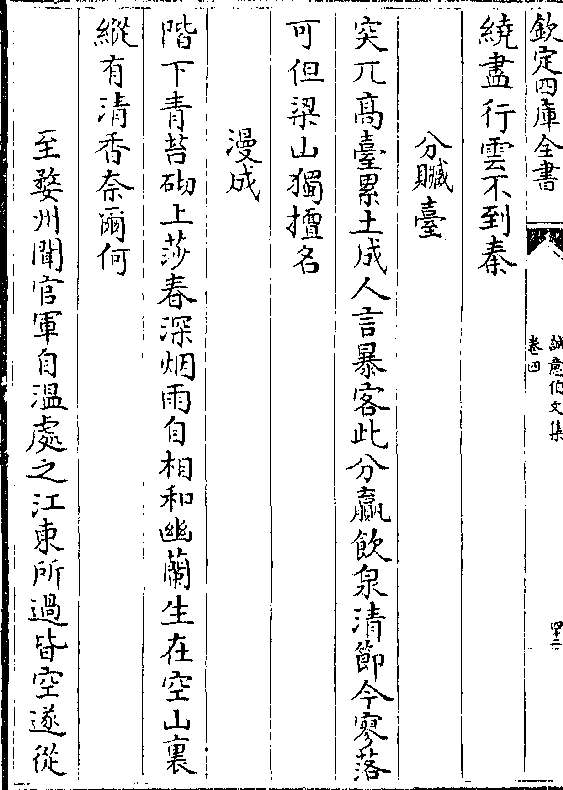 欽定四庫全書
誠意伯文集
卷四
四二
繞盡行雲不到秦
分贓臺
突兀高臺累土成人言暴客此分贏飲泉清節今寥落
可但梁山獨擅名
漫成
階下青苔砌上莎春深烟雨自相和幽蘭生在空山裏
縱有清香奈爾何
至婺州聞官軍自溫處之江東所過皆空遂從